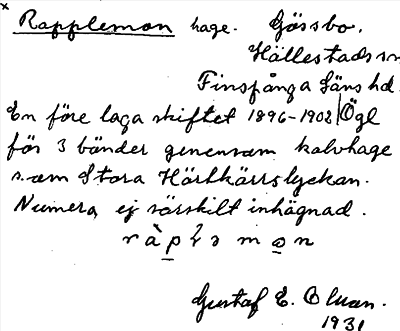 x
Rappleman hage. Gössbo.
Hällestads sn
Finspånga läns hd.
En före laga skiftet 1896-1902 Ögl
för 3 bönder gemensam kalvhage
s.om Stora Hörtkärrslyckan.
Numera ej särskilt inhägnad.
Gustaf E. Olsson.
1931